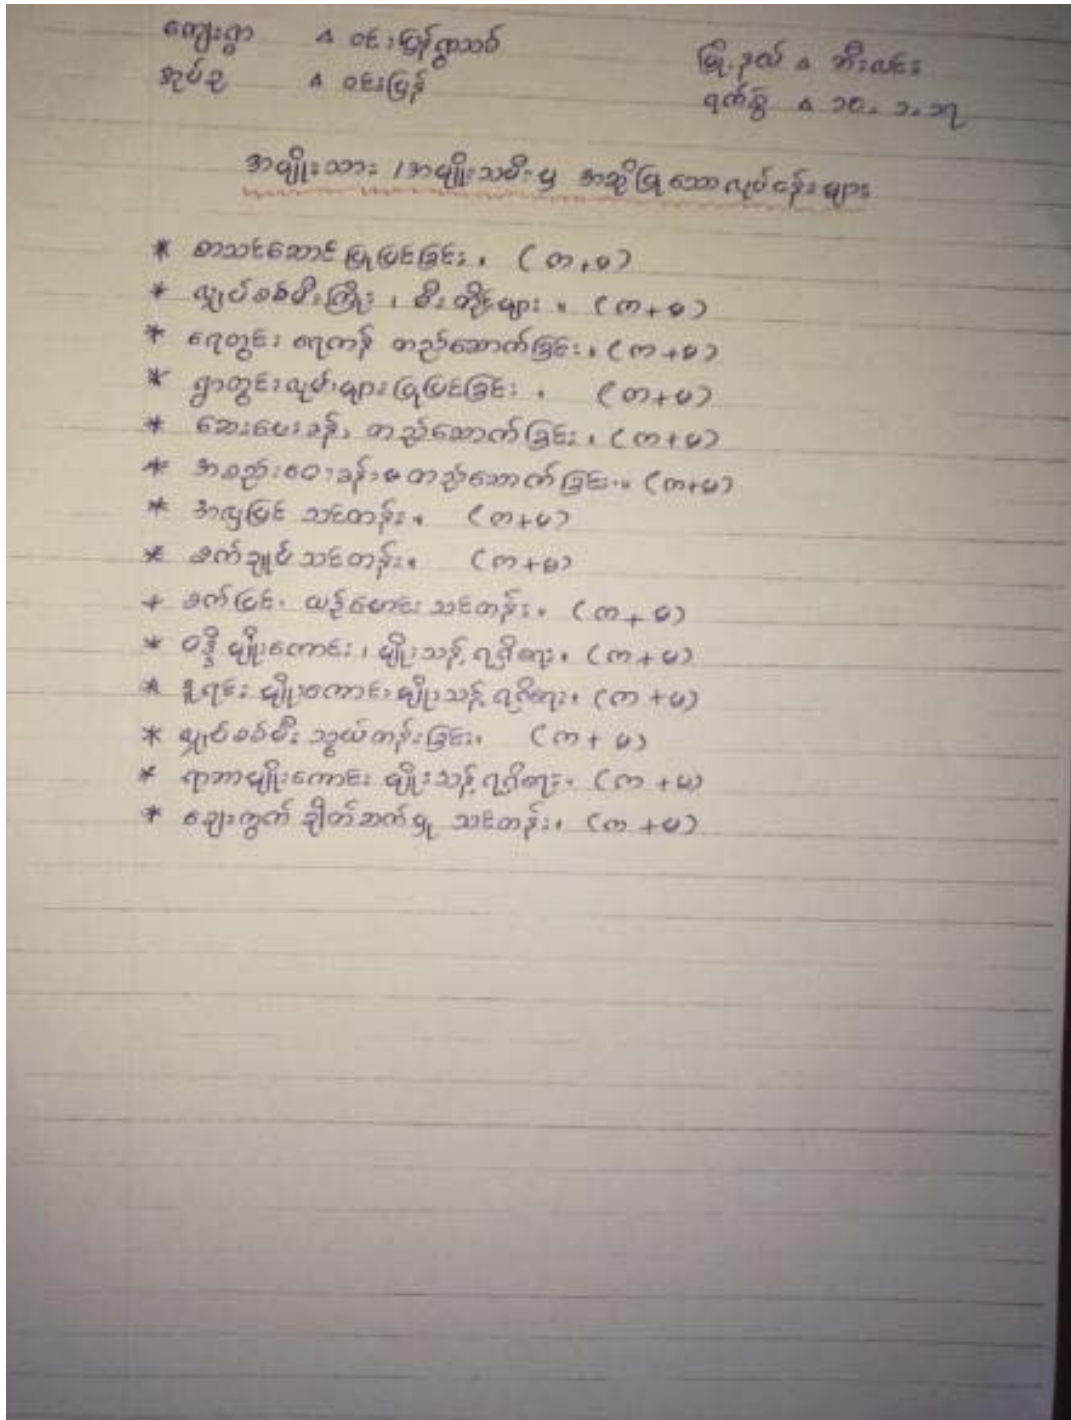 ကျေးရွာ ဝ ဝင်းမြွန်ရွာသစ် မြို့နယ် ဝ ဘီးလင်း
အုပ်စု ဝ ဝင်းမြွန် ရက်စွဲ ဝ ၁၀.၁.၁၇
အမျိုးသား / အမျိုးသမီးမှ အဆိုပြုသောလုပ်ငန်းများ
* စာသင်ဆောင် ပြုပြင်ခြင်း။ (က+မ)
* လျှပ်စစ်မီးကြိုး ၊ မီးတိုင်များ ။ (က+မ)
* ရေတွင်း ရေကန် တည်ဆောက်ခြင်း။ (က+မ)
* ရွာတွင်းလမ်းများပြုပြင်ခြင်း ။ (က+မ)
* ဆေးပေးခန်း တည်ဆောက်ခြင်း ။ (က+မ)
* အစည်းဝေးခန်းမ တည်ဆောက်ခြင်း။ (က+မ)
* အလှပြင် သင်တန်း။ (က+မ)
* စက်ချုပ် သင်တန်း။ (က+မ)
+ စက်ပြင်၊ ယဉ်မောင်း သင်တန်း။ (က+မ)
* ဝမ်ဒို မျိုးကောင်း ၊ မျိုးသန့် ရရှိရေး။ (က+မ)
* ဒူးရင်း မျိုးကောင်း မျိုးသန့် ရရှိရေး။ (က+မ)
* လျှပ်စစ်မီး သွယ်တန်းခြင်း။ (က+မ)
* ရာဘာမျိုးကောင်း မျိုးသန့် ရရှိရေး။ (က+မ)
* ဈေးကွက် ချိတ်ဆက်မှု သင်တန်း။ (က+မ)